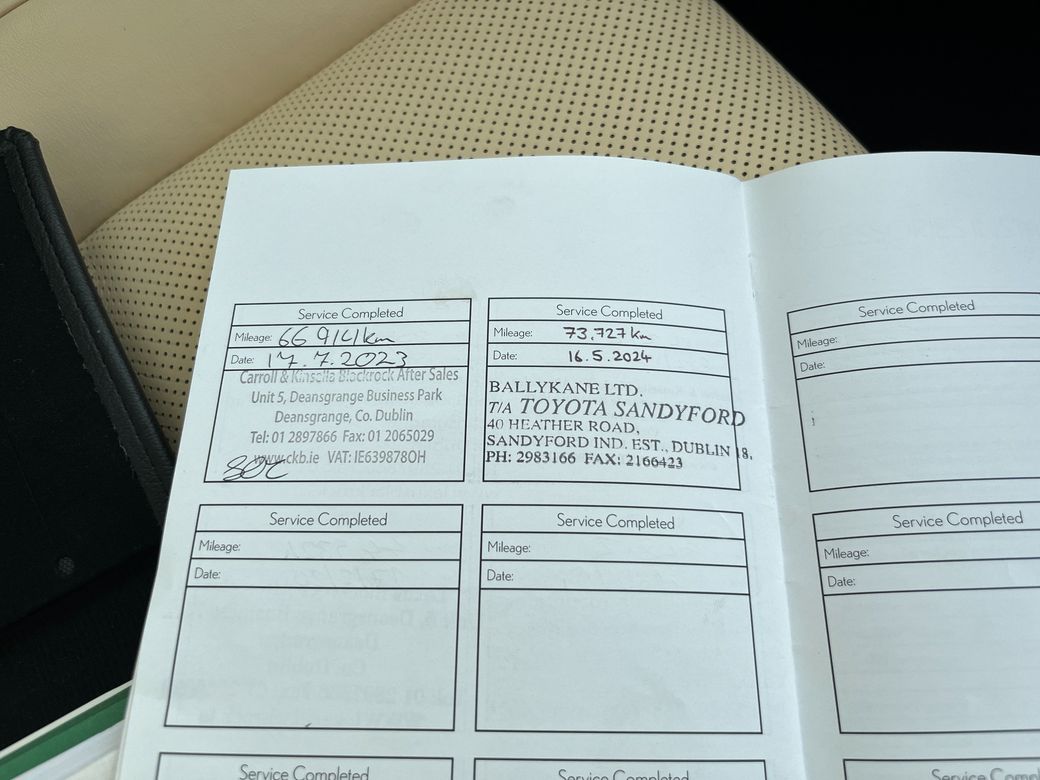 Service Completed
Mileage: 66 914km
Date: 17.7.2023
Carroll & Kinsella Blackrock After Sales
Unit 5, Deansgrange Business Park
Deansgrange, Co. Dublin
Tel: 01 2897866 Fax: 01 2065029
www.ckb.ie VAT: IE639878OH
Service Completed
Mileage: 73,727km
Date: 16.5.2024
BALLYKANE LTD.
T/A TOYOTA SANDYFORD
40 HEATHER ROAD,
SANDYFORD IND. EST., DUBLIN 18.
PH: 2983166 FAX: 2166423
Service Completed
Mileage:
Date:
Service Completed
Mileage:
Date:
Service Completed
Mileage:
Date:
Service Completed
Mileage:
Date:
Service Completed
Service Completed
Service